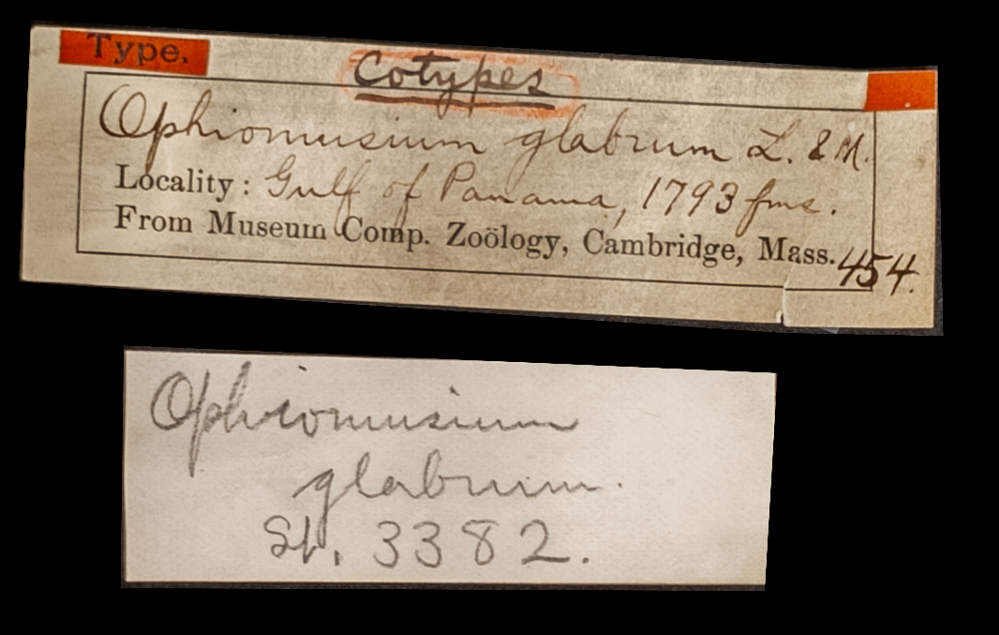 Type.
Cotypes
Ophiomusium glabrum L. & M.
Locality: Gulf of Panama, 1793 fms.
From Museum Comp. Zoölogy, Cambridge, Mass. 454.
Ophiomusium
glabrum.
St. 3382.